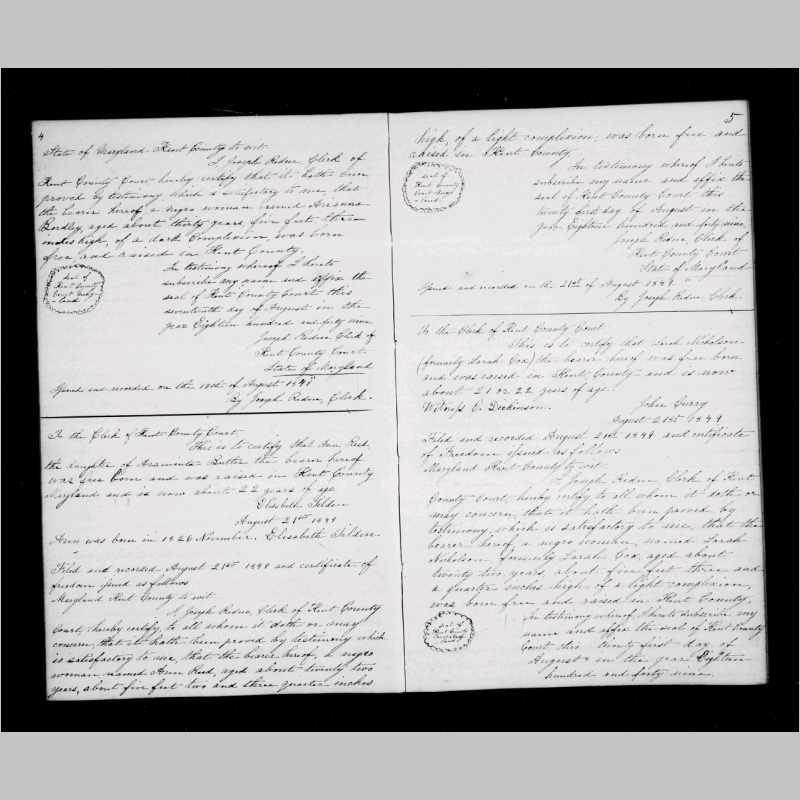 4
State of Maryland Kent County to wit
I Joseph Redue Clerk of
Kent County Court hereby certify that it hath been
proved by testimony which is satisfactory to me, that
the bearer hereof a negro woman named Arianna
Bordley, aged about thirty years, five feet three
inches high, of a dark Complexion, was born
free and raised in Kent County.
seal of
Kent County
Court Mary
-land
In testimony whereof I hereto
subscribe my name and affix the
seal of Kent County Court this
seventeenth day of August in the
year Eighteen hundred and forty nine
Joseph Redue Clerk of
Kent County Court
State of Maryland
Issued and recorded on the 18th of August 1849
By Joseph Redue, Clerk.
To the Clerk of Kent County Court.
This is to certify that Ann Reed
the daughter of Araminta Butler the bearer hereof
was free born and was raised in Kent County
Maryland and is now about 22 years of age
Elisabeth Tilden
August 21st 1849
Ann was born in 1826 November, Elisabeth Tilden
Filed and recorded August 21st 1849 and certificate of
freedom issued as follows
Maryland Kent County to wit
I, Joseph Redue, Clerk of Kent County
Court, hereby certify, to all whom it doth or may
concern, that it hath been proved by testimony which
is satisfactory to me, that the bearer hereof, a negro
woman named Ann Reed, aged about twenty two
years, about five feet two and three quarter inches
5
high, of a light complexion, was born free and
raised in Kent County
seal of
Kent County
Court Mary
-land
In testimony whereof I hereto
subscribe my name and affix the
seal of Kent County Court this
twenty first day of August in the
year Eighteen hundred and forty nine
Joseph Redue, Clerk of
Kent County Court
State of Maryland
Issued and recorded on the 21st of August 1849
By Joseph Redue Clerk.
To the Clerk of Kent County Court
This is to certify that Sarah Nicholson
(formerly Sarah Cox) the bearer hereof was free born
and was raised in Kent County and is now
about 21 or 22 years of age.
Witness C. Dickinson. John Curry
August 21st 1849
Filed and recorded August 21st 1849 and certificate
of Freedom issued as follows
Maryland Kent County to wit
I Joseph Redue Clerk of Kent
County Court, hereby certify to all whom it doth or
may concern, that it hath been proved by
testimony which is satisfactory to me, that the
bearer hereof, a negro woman, named Sarah
Nicholson formerly Sarah Cox, aged about
twenty two years, about five feet three and
a quarter inches high, of a light complexion,
was born free and raised in Kent County,
seal of
Kent County
In testimony whereof, I hereto subscribe my
name and affix the seal of Kent County
Court this twenty first day of
August in the year Eighteen
hundred and forty nine